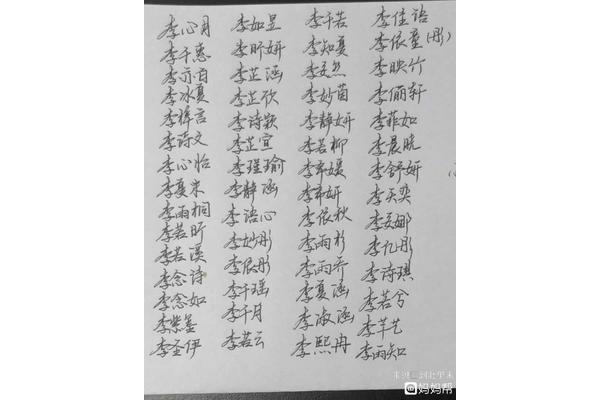 李心月 李如昱 李千若 李佳语
李千惠 李昕妍 李知夏 李依童(彤)
李亦百 李芷涵 李奕然 李映竹
李冰夏 李芷欣 李妙茵 李俪轩
李梓言 李诗颖 李静妍 李菲如
李诗文 李芷宜 李若柳 李晨晓
李心怡 李瑾瑜 李舒妍
李夏末 李静涵 李天奕
李雨桐 李语心 李依秋 李奕娜
李若昕 李妙彤 李雨杉 李忆彤
李若溪 李依彤 李雨乔 李诗琪
李念诗 李千瑶 李夏涵 李若兮
李念如 李千月 李淑涵 李芊艺
李紫墨 李若云 李熙冉 李雨知
李圣伊
妈妈帮